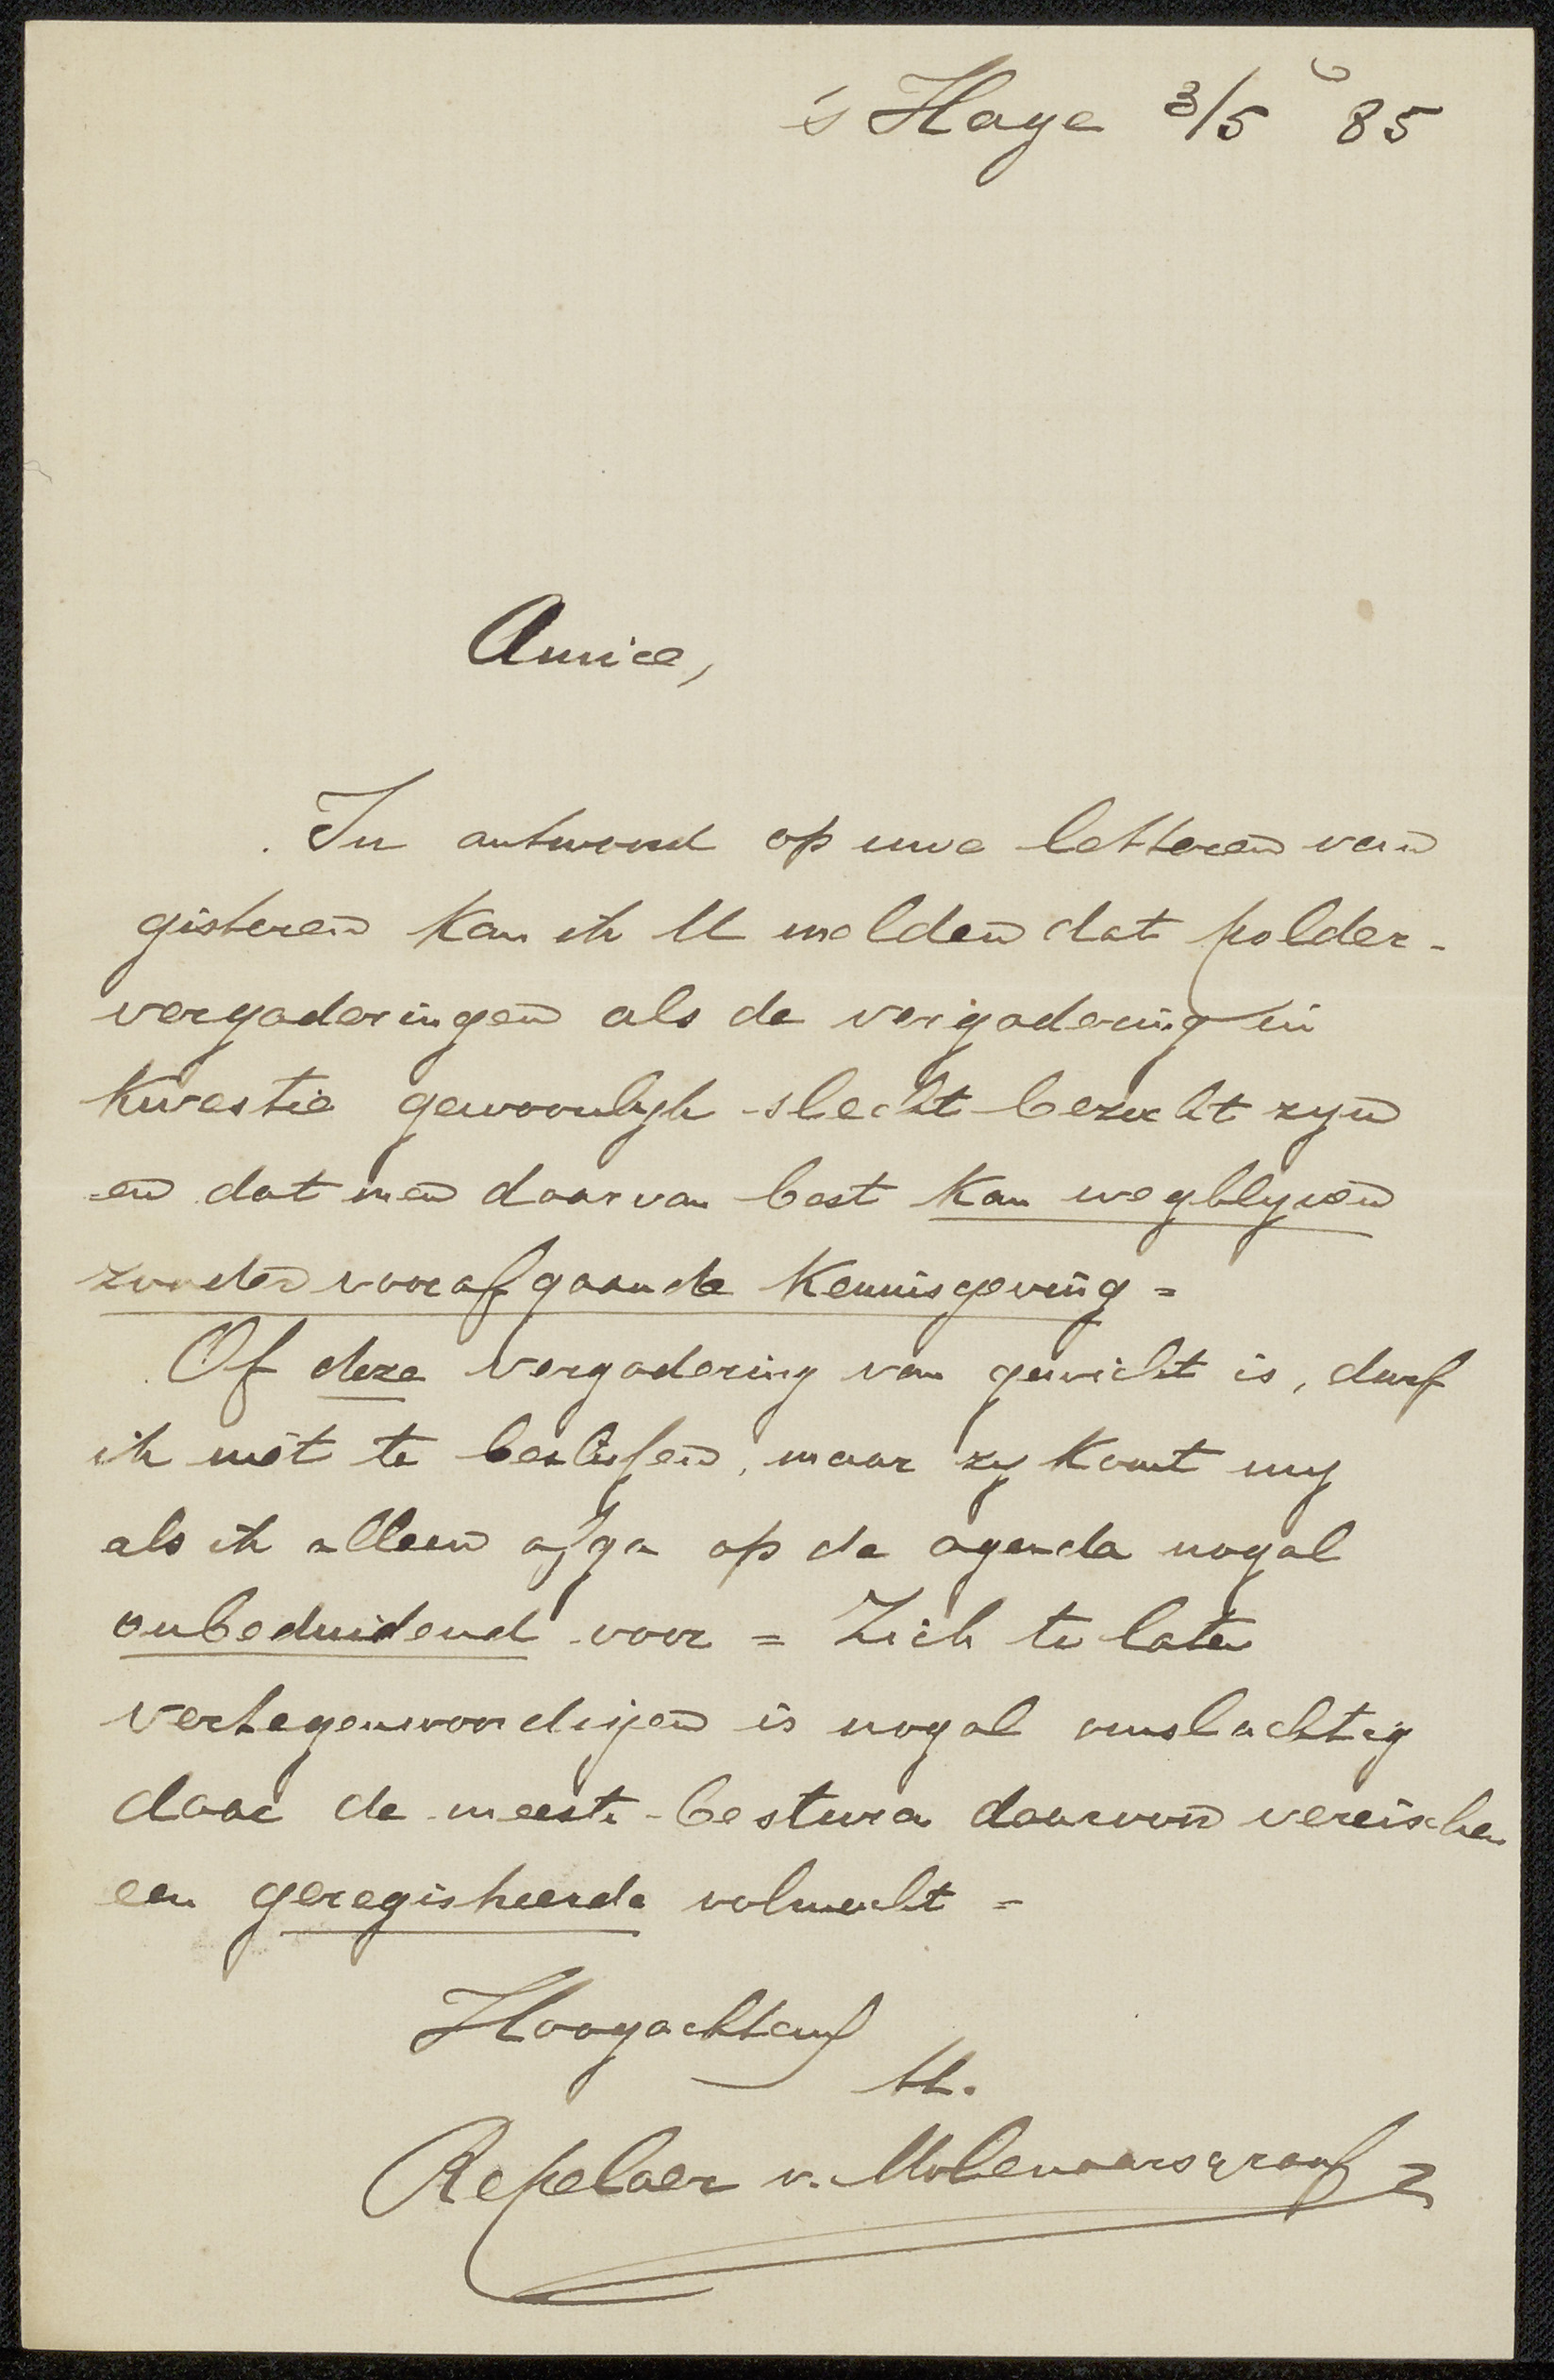 's Hage 3/5 85
Amice,
In antwoord op uwe letteren van
gisteren kan ik U melden dat polder-
vergaderingen als de vergadering in
kwestie gewoonlyk slecht bezocht zyn
en dat men daarvan best kan wegblyven
zonder voorafgaande kennisgeving =
Of deze vergadering van gewicht is, durf
ik niet te beslissen, maar zy komt my
als ik alleen afga op de agenda nogal
onbeduidend voor = Zich te laten
vertegenwoordigen is nogal omslachtig
daar de meeste besturen daarvoor vereischen
een geregistreerde volmacht =
Hoogachtend
tt.
Repelaer v. Molenaarsgraaf